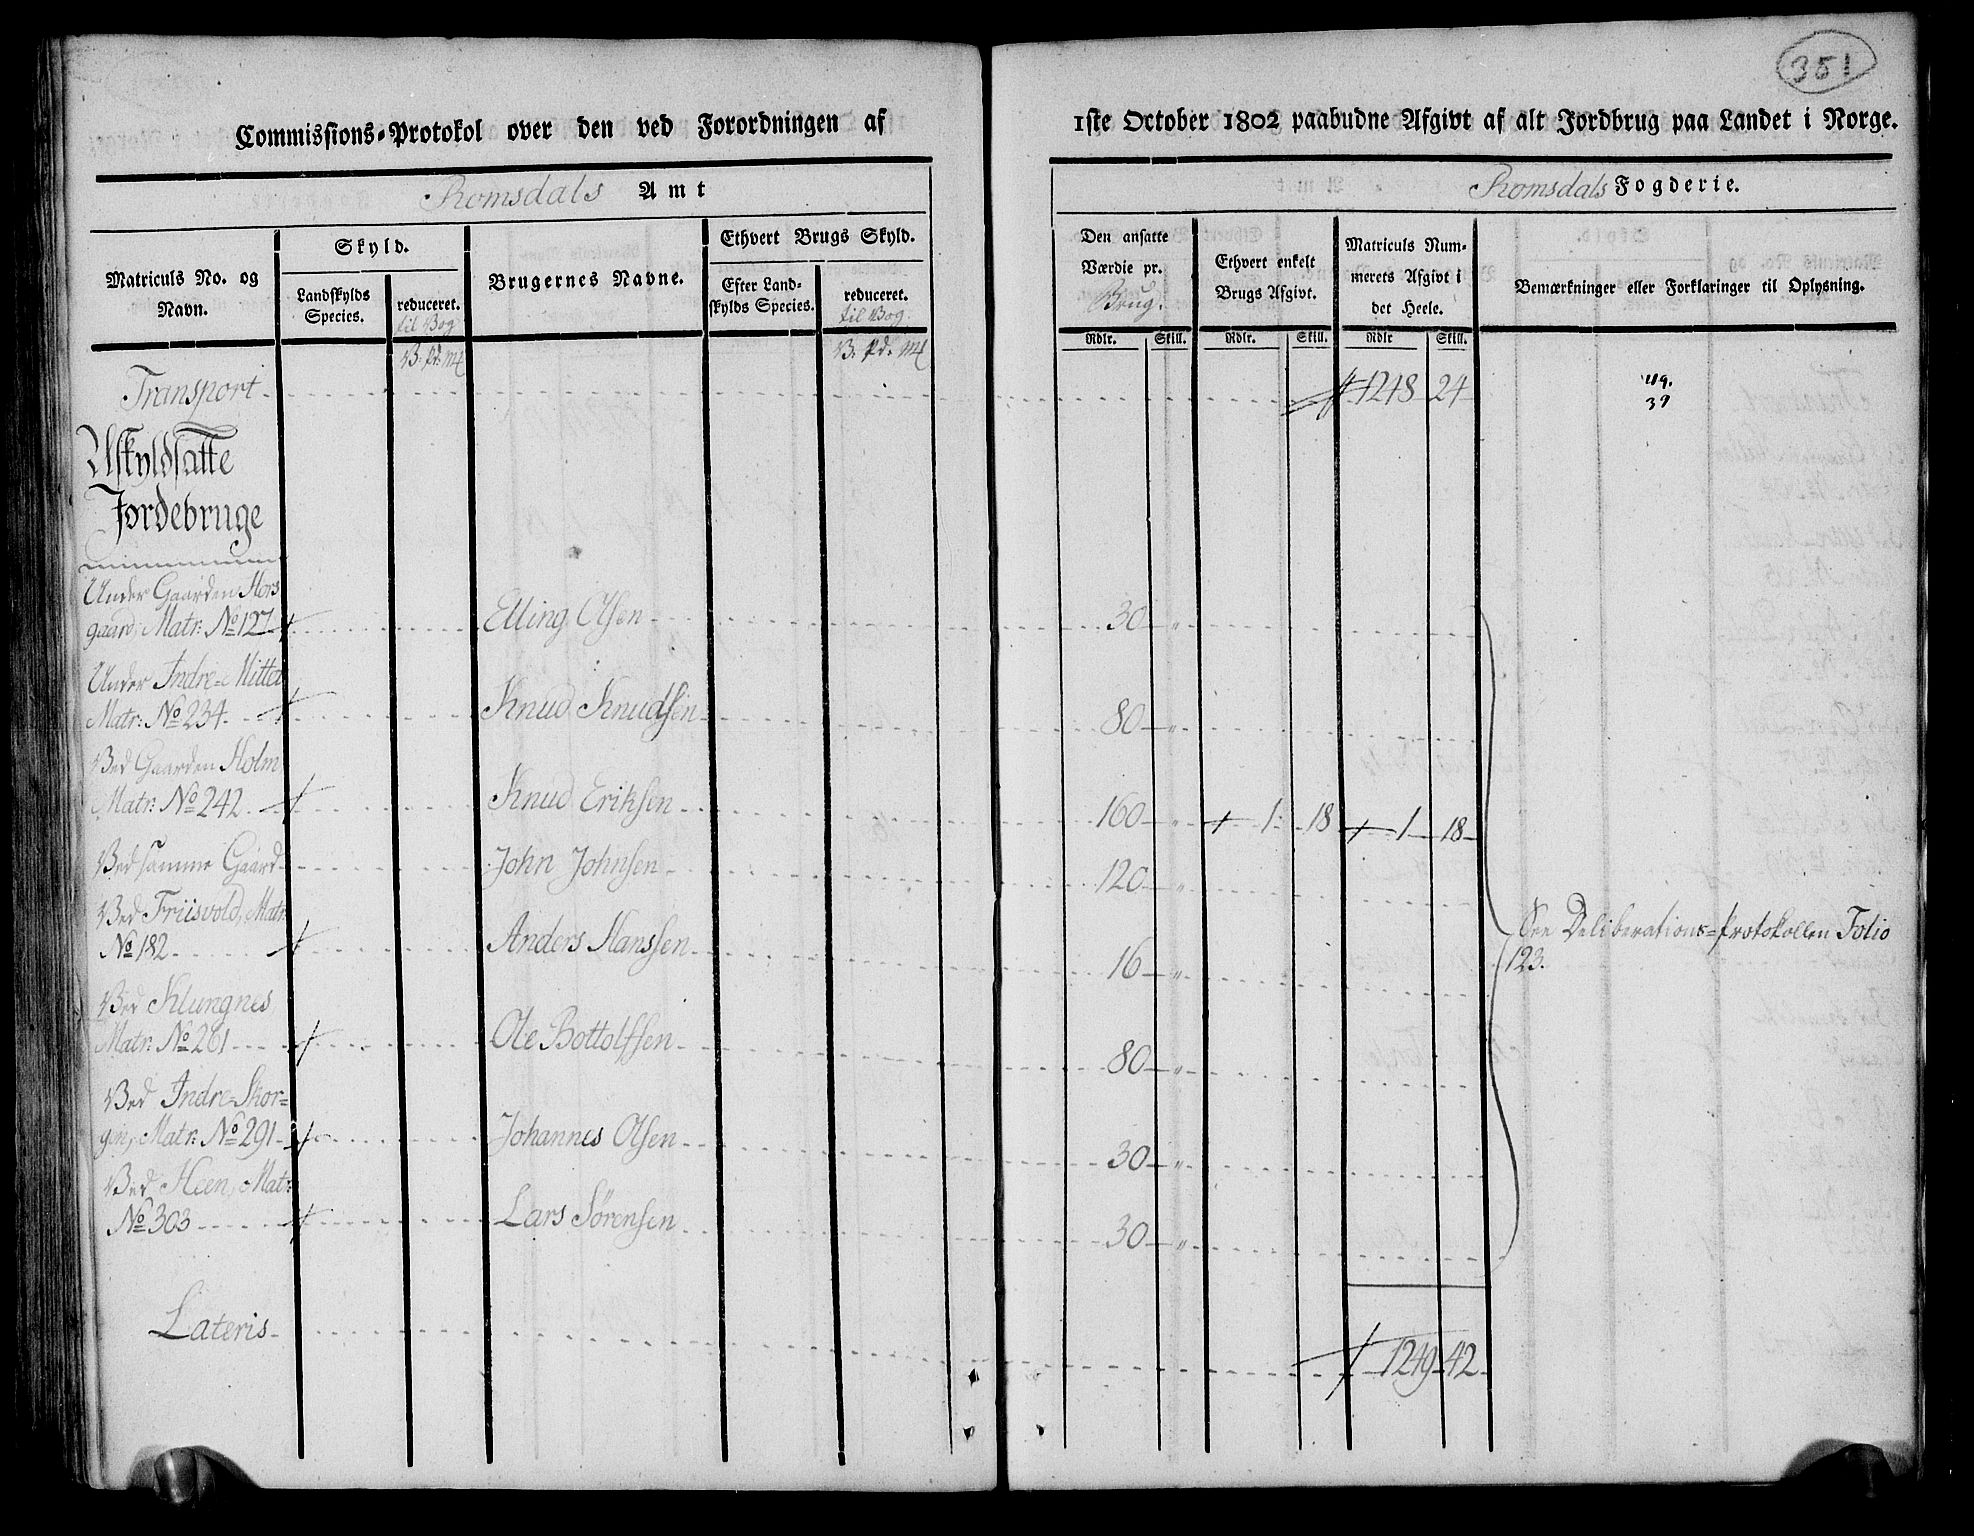 351
Commissions-Protokol over den ved Forordningen af 1ste October 1802 paabudne Afgivt af alt Jordbrug paa Landet i Norge.
Romsdals Amt
Romsdals Fogderie.
Matriculs No. og Navn.
Skyld.
Landskylds Species.
reduceret.
til Bog
B: pd. mk
Brugernes Navne.
Ethvert Brugs Skyld.
Efter Landskylds Species.
reduceret.
til Bog.
B: pd. mk
Den ansatte Værdie pr.
Brug.
Rdlr. Skill.
Ethvert enkelt Brugs Afgivt.
Rdlr. Skill.
Matriculs Nummerets Afgivt i det Heele.
Rdlr Skill.
Bemærkninger eller Forklaringer til Oplysning.
Transport 1248 24
39
Uskyldsatte
Jordebruge
Under Gaarden Hors
gaard, Matr: No 127 Elling Olsen 30 "
Under Indre Mittet
Matr: No 234 Knud Knudsen 80 "
Ved Gaarden Holm
Matr: No 242 Knud Eriksen 160 " 1 18 1 18
Ved samme Gaard John Johnsen 120 "
Ved Friisvold, Matr:
No 182 Anders Hanssen 16 "
See Deliberations-Protokollen Folio
123.
Ved Klungnes
Matr: No 261 Ole Bottolfsen 80 "
Ved Indre Skor-
gen, Matr: No 291 Johannes Olsen 30 "
Ved Heen, Matr:
No 303 Lars Sörensen 30 "
Lateris 1249 42